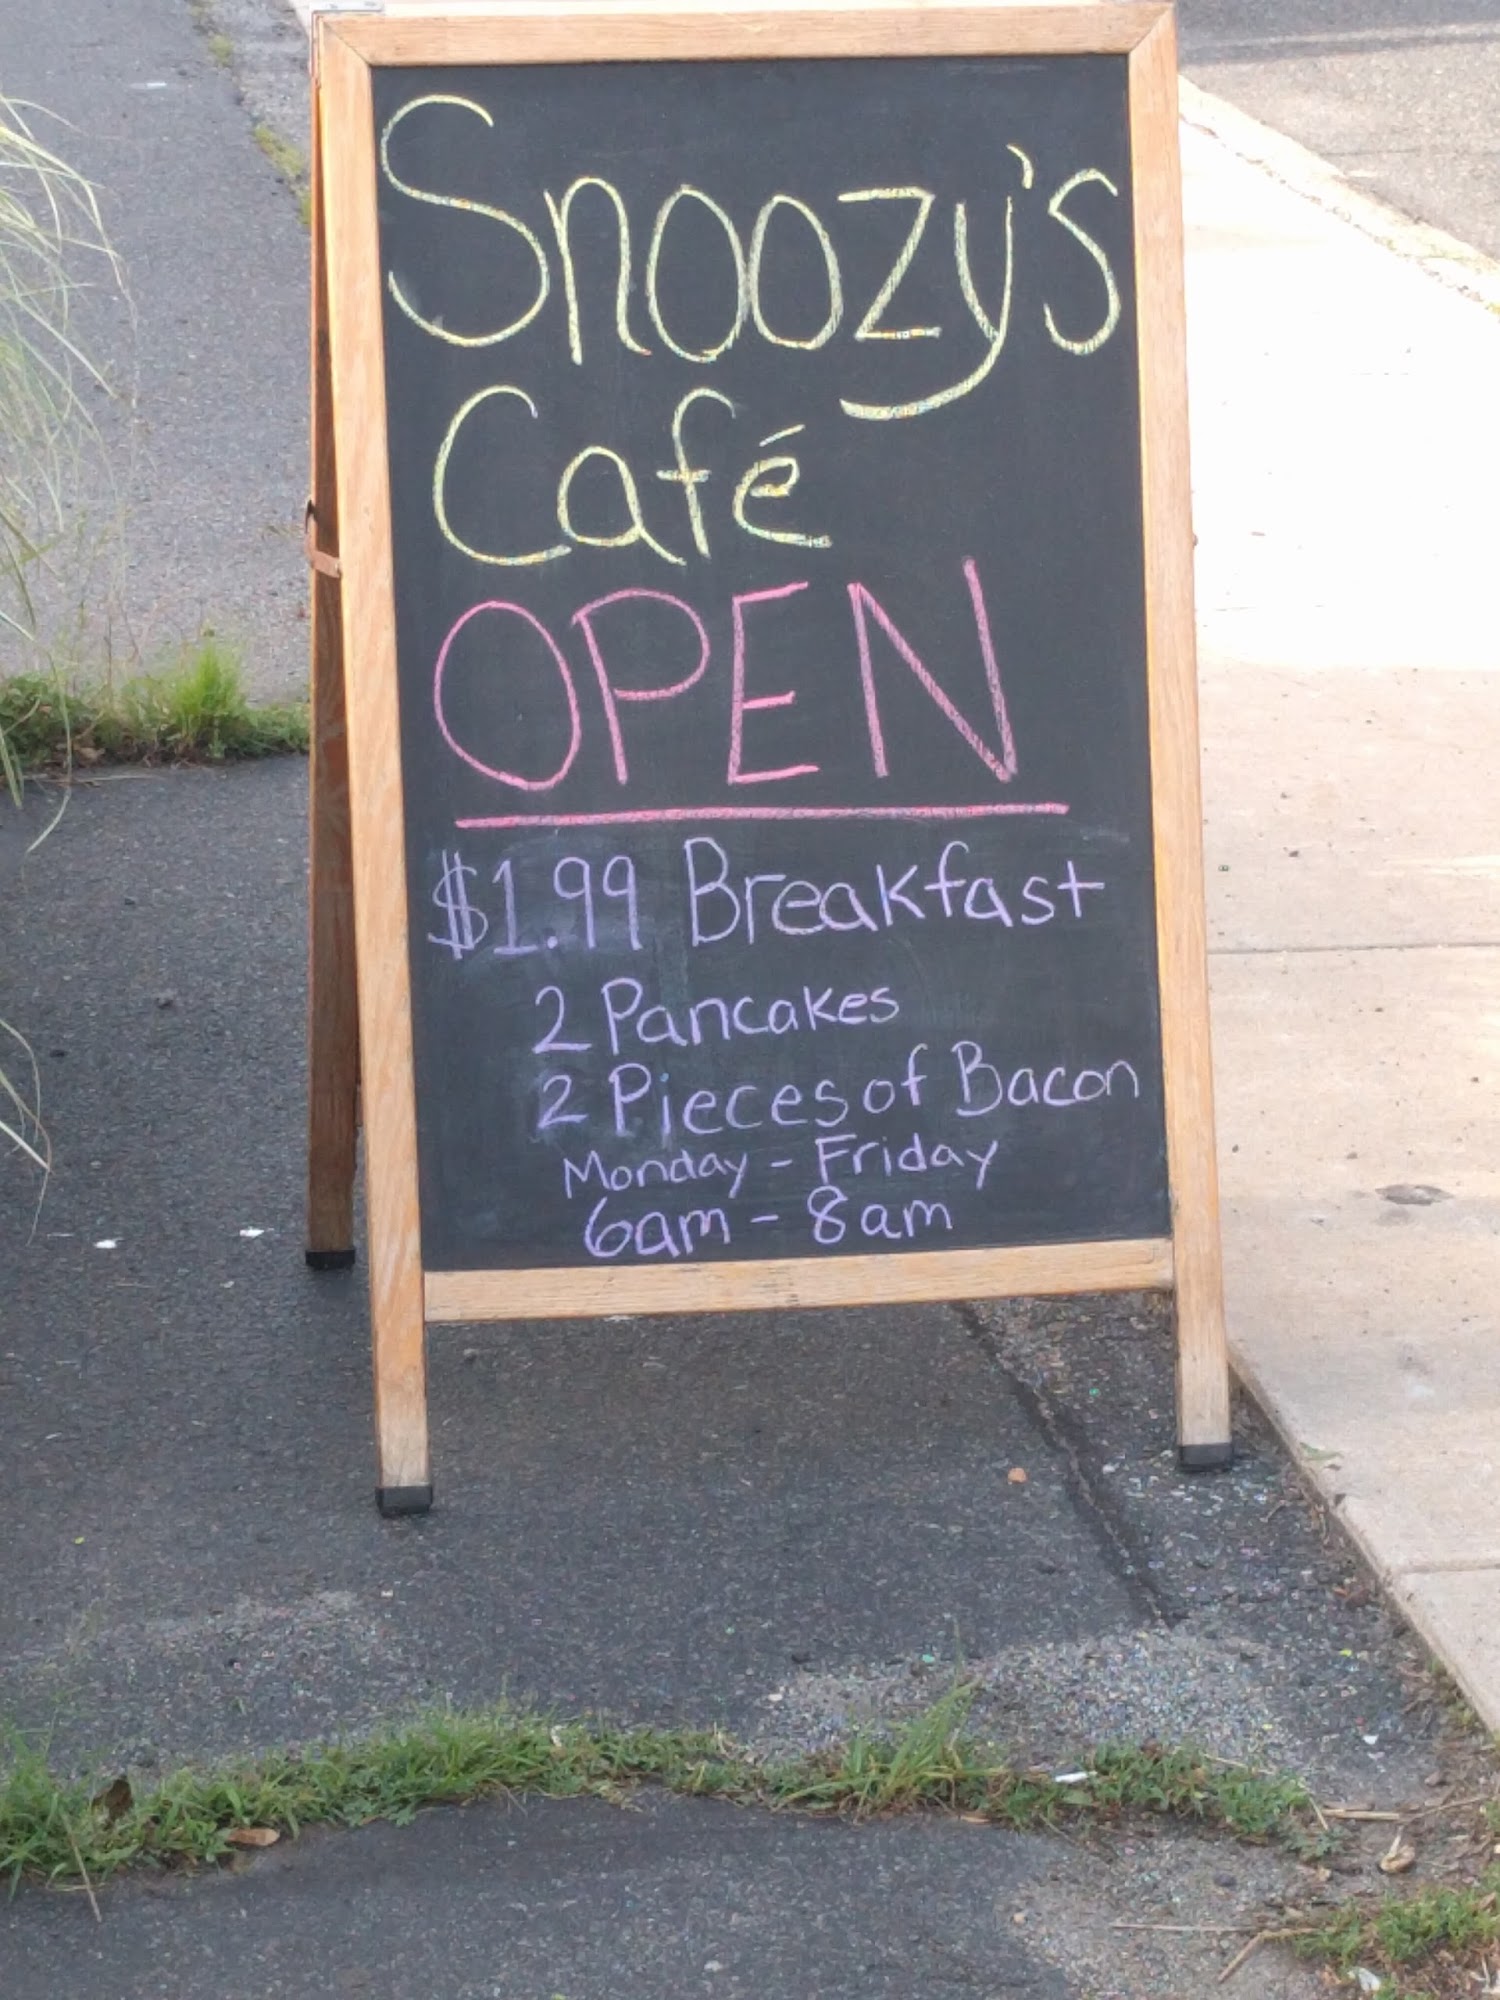 Snoozy's
Café
OPEN
$1.99 Breakfast
2 Pancakes
2 Pieces of Bacon
Monday - Friday
6am - 8am